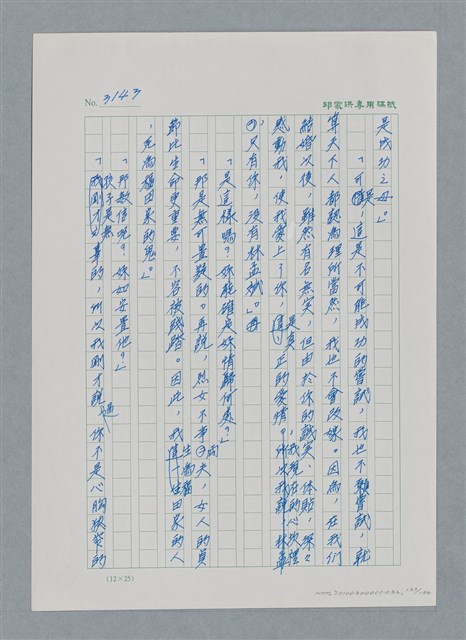 No. 3143
邱家洪專用稿紙
是成功之母。」
「可是，這是不可能成功的嘗試，我也不願嘗試，就
算天下人都認為理所當然，我也不會改嫁。因為，在我們
結婚以後，雖然有名無實，但由於你的誠實、體貼，深深
感動我，使我愛上了你，是真正的愛情。所以我說，我現在的心坎裡
只有你，沒有林孟斌。」
「是這樣嗎？妳能確定妳情歸何處？」
「那是無可置疑的。再說，烈女不事二夫，女人的貞
節比生命更重要，不容被踐踏。因此，我生為邱家的人
，死為邱家的鬼。」
「那敏信呢？妳如安置他？」
「孩子是無辜的，所以我剛才說過，你不是心胸狹窄的
(12×25)